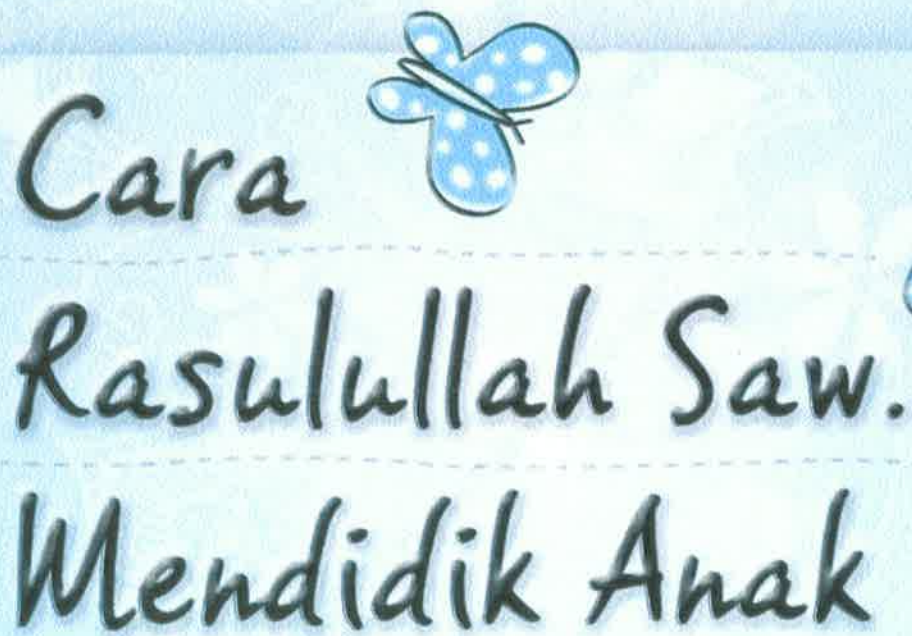 Cara
Rasulullah Saw.
Mendidik Anak